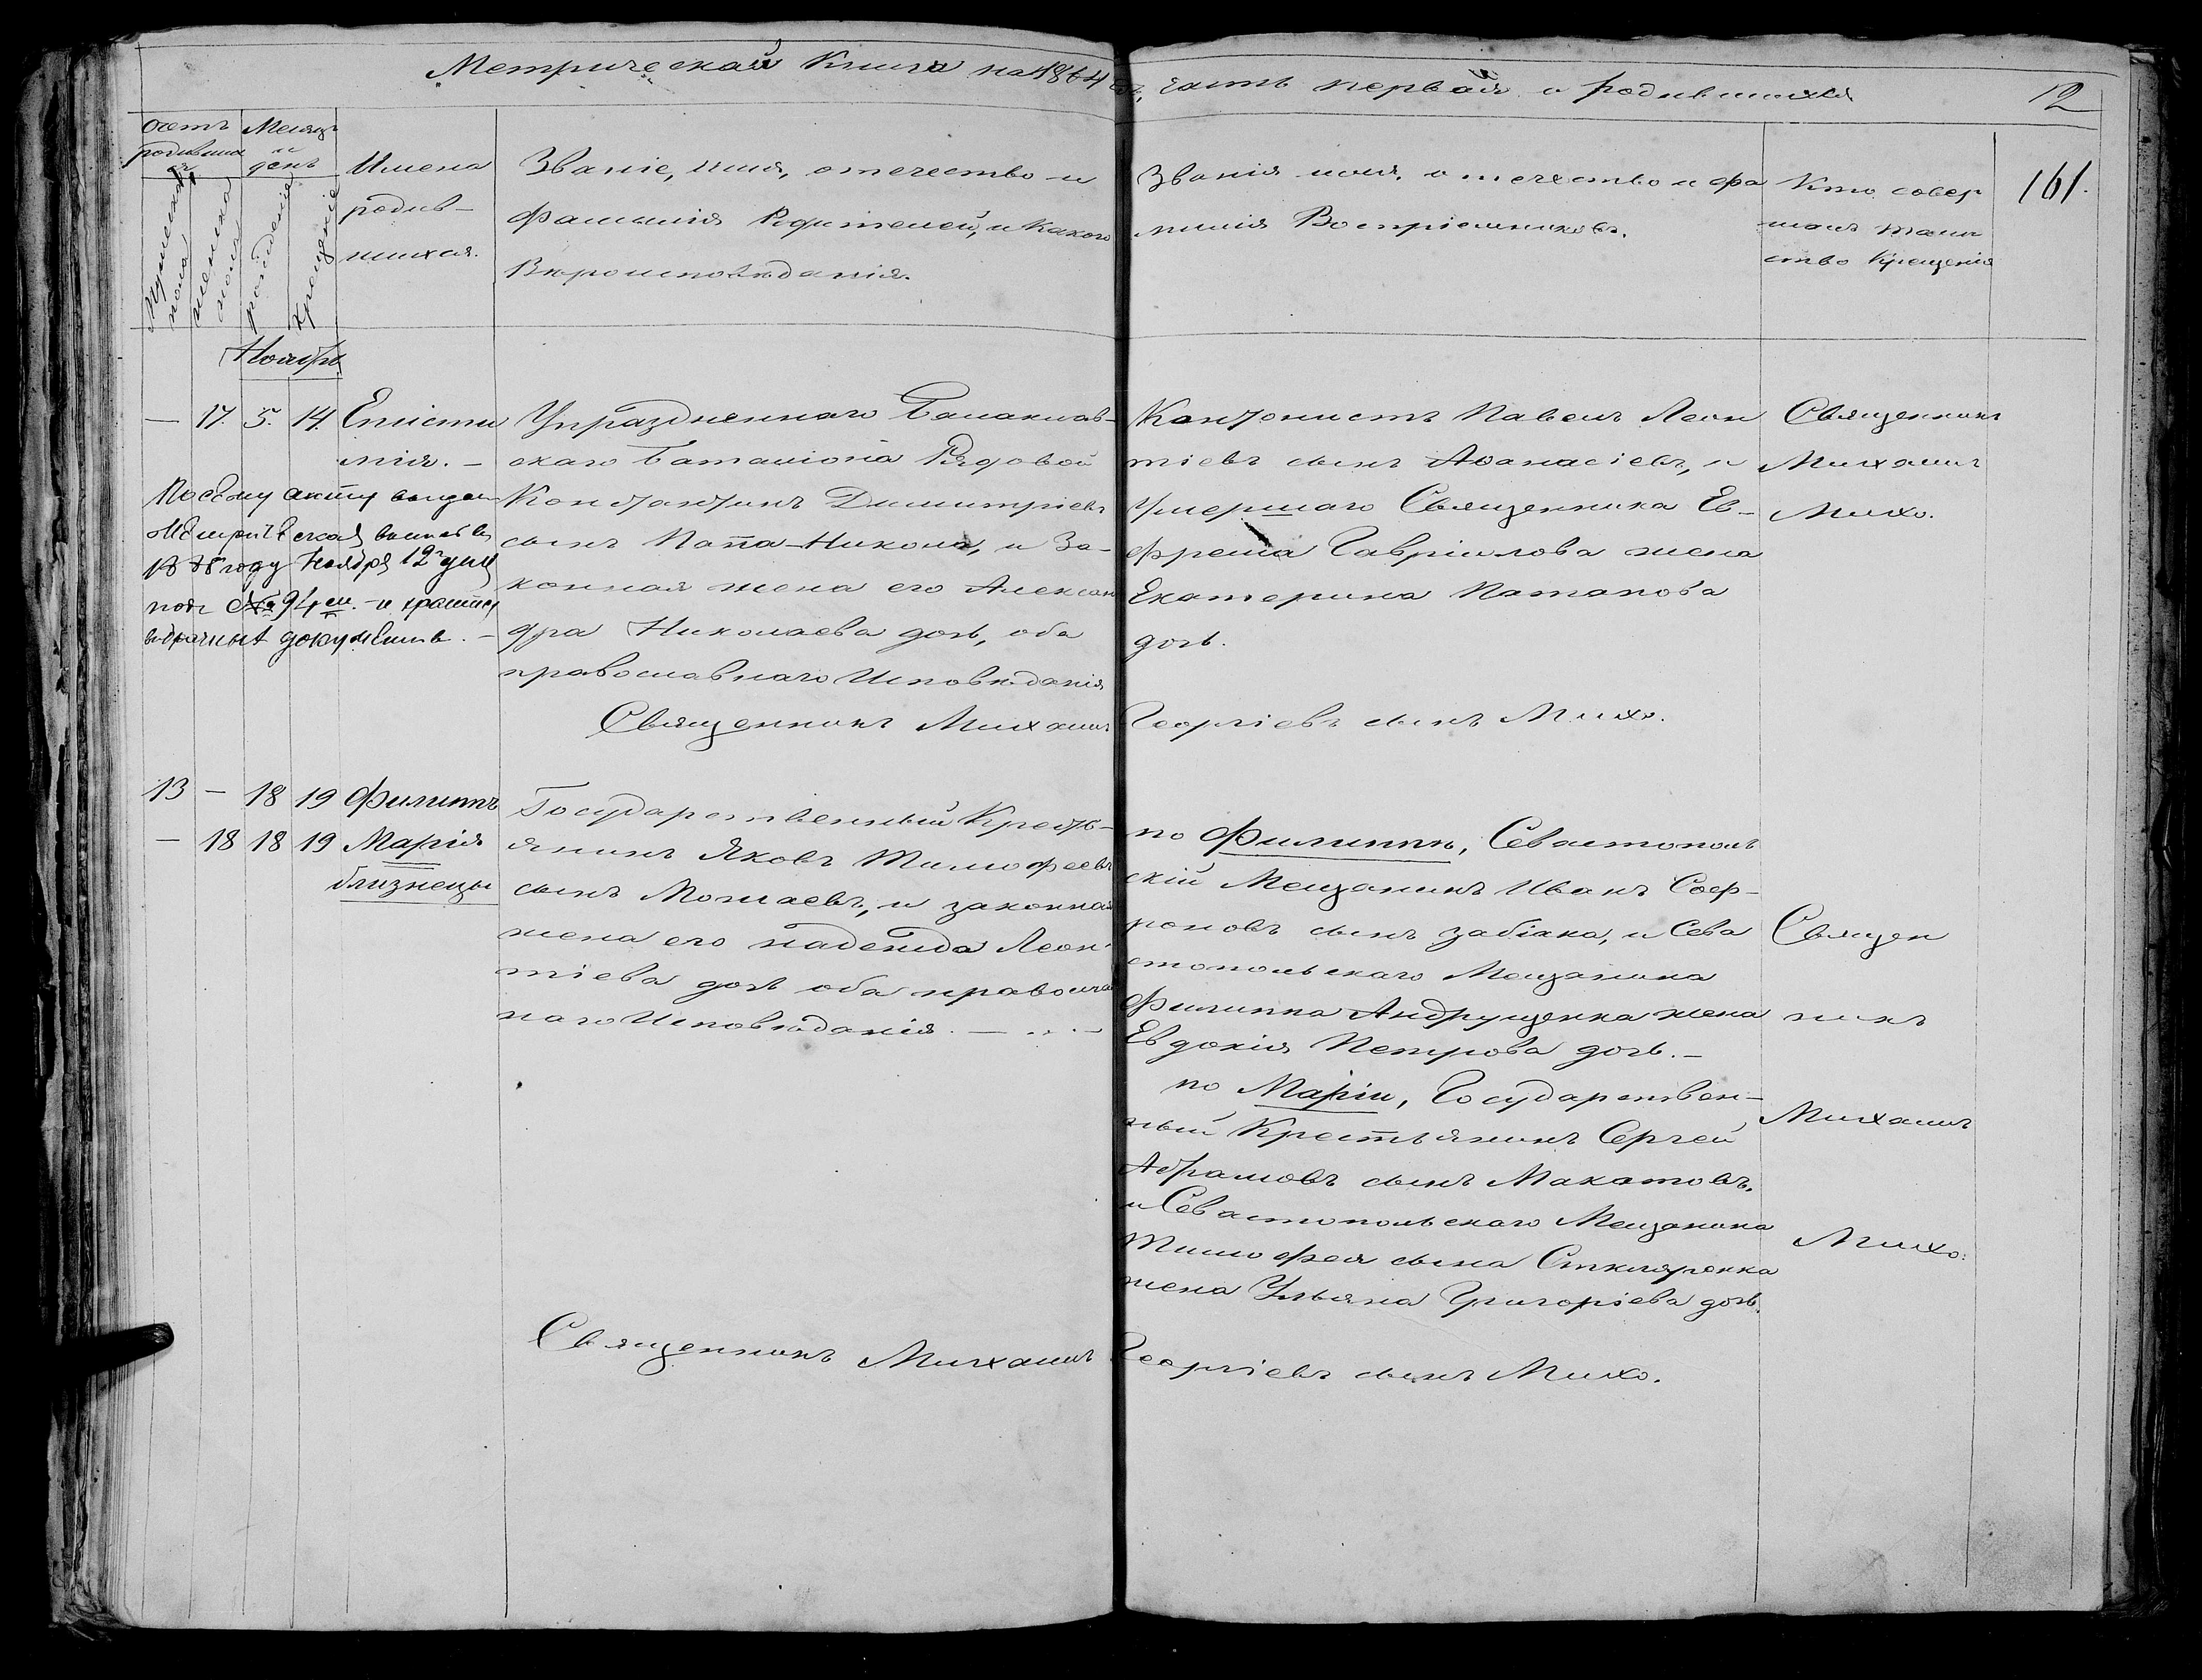 Метрической Книги на 1864 г., часть первая о родившихся
12
161.
Счетъ родившихся
Мужеска пола
женска пола
Месяцъ и день
рожденія
крещеніе
Имена
родив-
шихся.
Званіе, имя, отечество и
фамилія Родителей, и какого
Вѣроисповѣданія.
Званія имя, отечество и фа
милія Воспріемниковъ.
Кто совер
шалъ таин
ство Крещенія
Ноябрь
— 17. 5. 14. Епісти
мія. —
Упраздненнаго Балаклав-
скаго баталіона Рядовой
Константинъ Димитріевъ
сынъ Папа-Никола, и За-
конная жена его Алексан
дра Николаева дочь, оба
православнаго Исповѣданія
Кантонистъ Павелъ Леон
тіевъ сынъ Аѳанасіевъ, и
Умершаго Священника Ев-
фрема Гавріилова жена
Екатерина Патапова
дочь.
Священникъ
Михаилъ
Михо.
По сему акту выдан
Метрическая выпись въ
году Ноября 12 дня
подъ № 94м. и хранится
документъ. —
Священникъ Михаилъ Георгіевъ сынъ Михо.
13 — 18 19 Филиппъ
— 18 18 19 Марія
близнецы
Государственный Кресть-
янинъ Яковъ Тимофеевъ
сынъ Можаевъ, и законная
жена его Надежда Леон
тіева дочь оба православ
наго Исповѣданія. —
по Филиппѣ, Севастополь
скій Мещанинъ Иванъ Соф-
роновъ сынъ Забіяка, и Сева
стопольскаго Мещанина
Филиппа Андрущенка жена
Евдокія Петрова дочь. —
по Маріи, Государствен-
ный Крестьянинъ Сергей
Абрамовъ сынъ Махатовъ,
и Севастопольскаго Мещанина
Тимофея сына Сткляренка
жена Ульяна Григоріева дочь.
Священ
никъ
Михаилъ
Михо.
Священникъ Михаилъ Георгіевъ сынъ Михо.